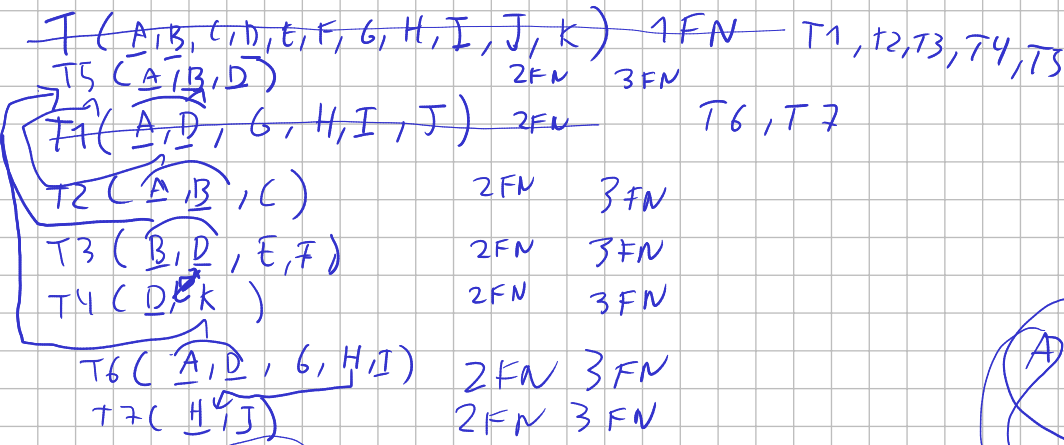 T ( A, B, C, D, E, F, G, H, I, J, K ) 1FN T1, t2, T3, T4, T5
T5 ( A, B, D ) 2FN 3FN
T1 ( A, D, G, H, I, J ) 2FN T6, T7
T2 ( A, B, C ) 2FN 3FN
T3 ( B, D, E, F ) 2FN 3FN
T4 ( D, K ) 2FN 3FN
T6 ( A, D, G, H, I ) 2FN 3FN
A
T7 ( H, J ) 2FN 3FN